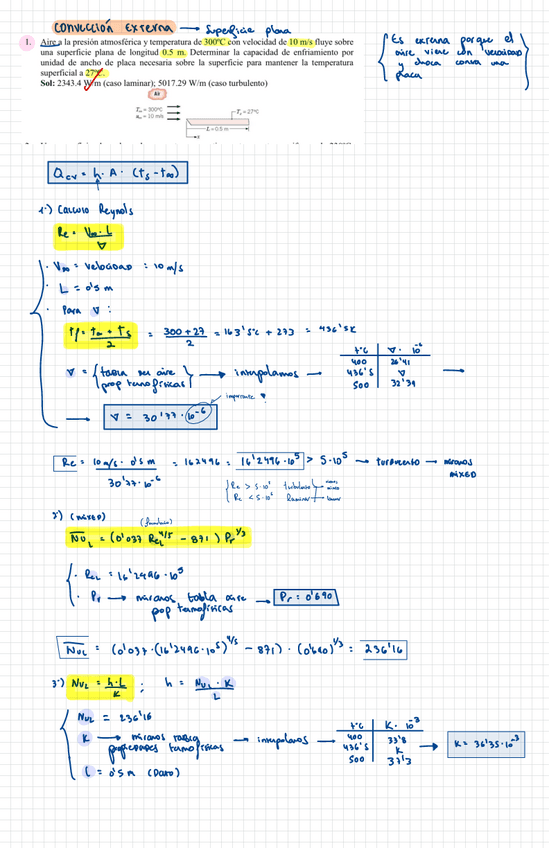 CONVECCIÓN EXTERNA → Superficie plana
1. Aire a la presión atmosférica y temperatura de 300°C con velocidad de 10 m/s fluye sobre
una superficie plana de longitud 0.5 m. Determinar la capacidad de enfriamiento por
unidad de ancho de placa necesaria sobre la superficie para mantener la temperatura
superficial a 27°C.
Sol: 2343.4 W/m (caso laminar); 5017.29 W/m (caso turbulento)
Es externa porque el
aire viene con velocidad
y choca contra una
placa
Air
T∞ = 300°C
u∞ = 10 m/s
Ts = 27°C
L = 0.5 m
x
Qcv = h · A · (ts - t∞)
1º) Calculo Reynols
Re = V∞ · L / ν
· V∞ = velocidad : 10 m/s
· L = 0'5 m
· Para ν :
Tf = t∞ + ts / 2 = 300 + 27 / 2 = 163'5ºC + 273 = 436'5K
ν = {tabla del aire prop termofísicas} → interpolamos →
tªC | ν · 10^-6
400 | 26'41
436'5 | ν
500 | 32'39
→ ν = 30'77 · 10^-6
importante
Re = 10 m/s · 0'5 m / 30'77 · 10^-6 = 162496 = 16'2496 · 10^5 > 5 · 10^5 → turbulento → miramos
MIXED
Re > 5·10^5 turbulento →
Re < 5·10^5 Laminar →
2º) (MIXED)
(formulario)
NuL = (0'037 ReL^4/5 - 871) Pr^1/3
· ReL = 16'2496 · 10^5
· Pr → miramos tabla aire → Pr = 0'690
pop termofísicas
NuL = (0'037 · (16'2496 · 10^5)^4/5 - 871) · (0'690)^1/3 = 236'16
3º) NuL = h·L / K ; h = NuL · K / L
NuL = 236'16
K → miramos tabla → interpolamos →
propiedades termofísicas
L = 0'5 m (Dato)
tªC | K · 10^-3
400 | 33'8
436'5 | K
500 | 37'3
→ K = 36'35·10^-3